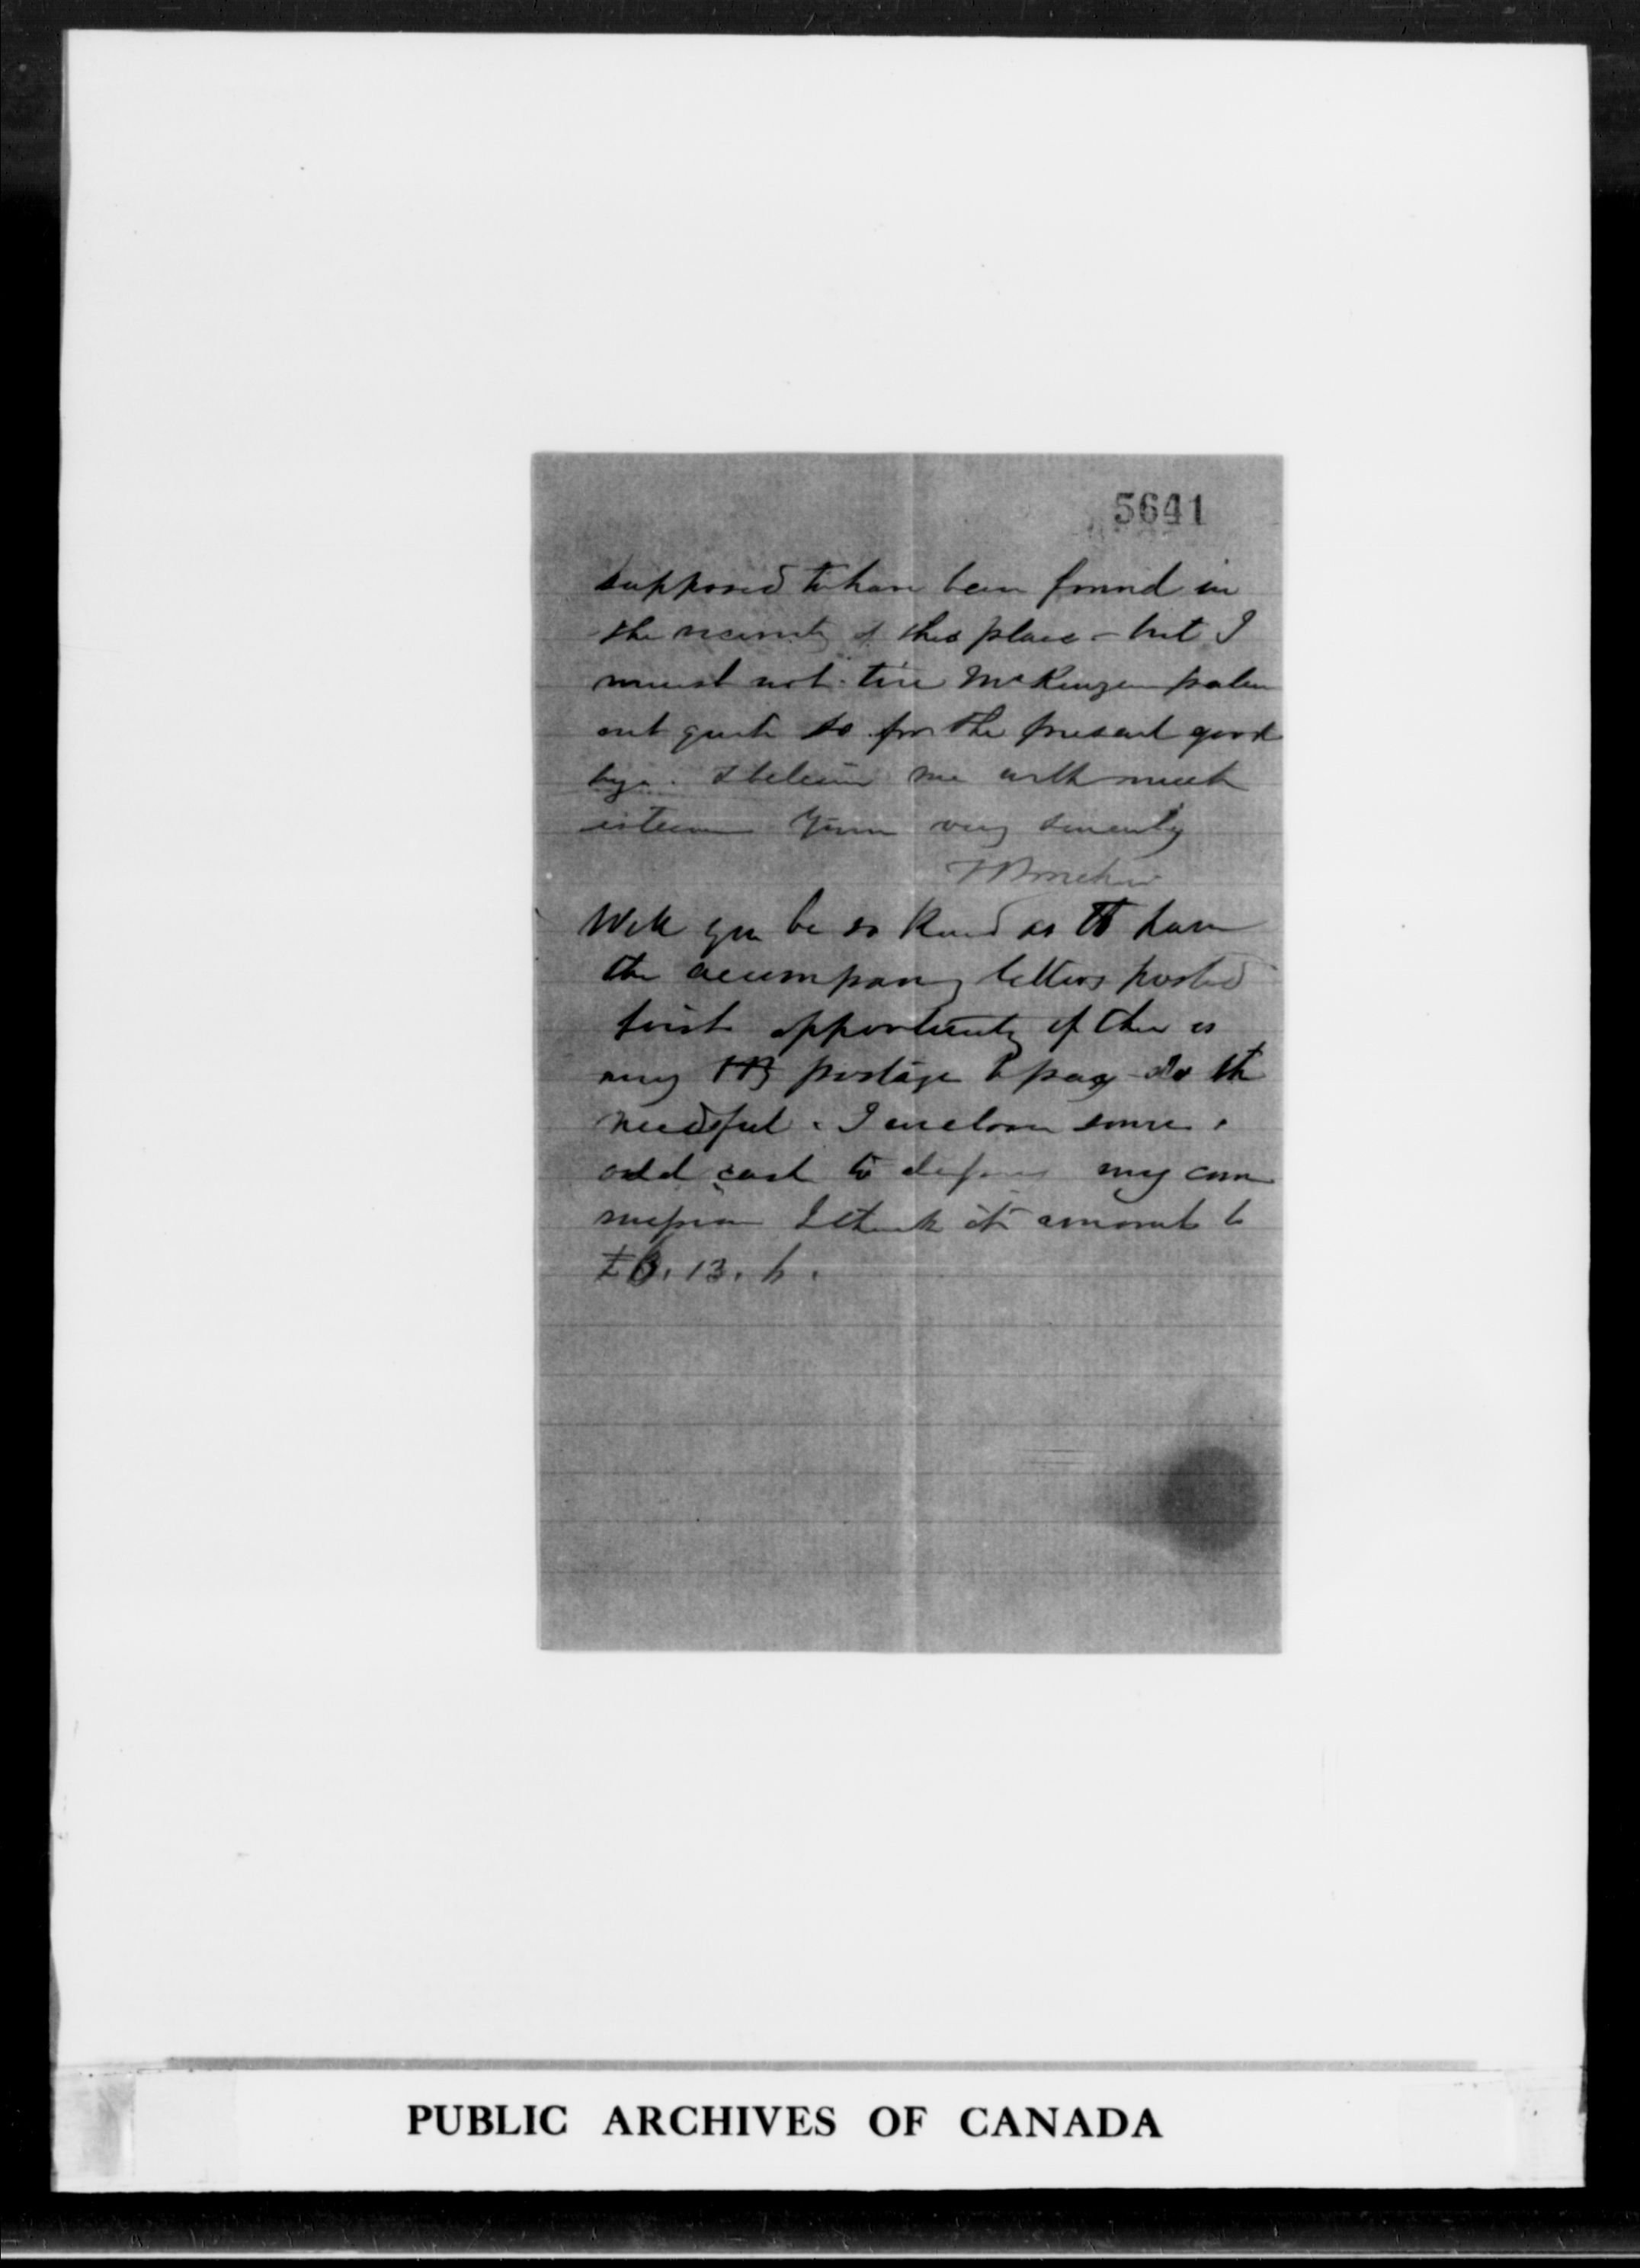 5641
supposed to have been found in
the vicinity of this place - but I
must not tire McKenzie
out quite so for the present good
bye. & believe me with much
esteem Yours very sincerely
Will you be so kind as to have
the accompany letters posted
first opportunity if ther is
any HB postage to pay do the
needful. I enclose some
odd cash to defray my com
mission I think it amounts to
£0. 13. 6.
PUBLIC ARCHIVES OF CANADA